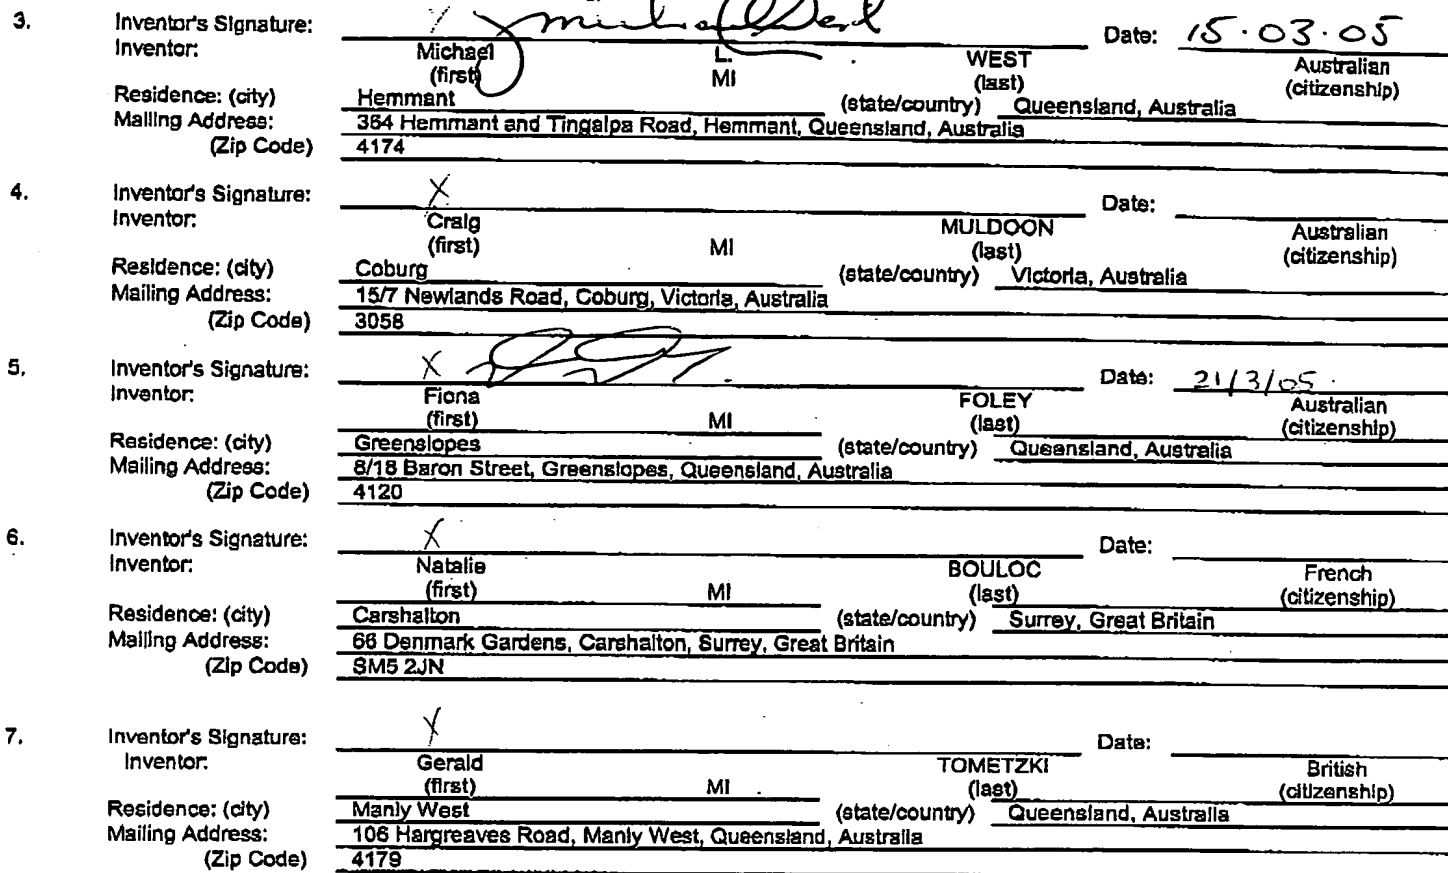 3. Inventor's Signature: Michael West Date: 15.03.05
Inventor: Michael L. WEST Australian
(first) MI (last) (citizenship)
Residence: (city) Hemmant (state/country) Queensland, Australia
Mailing Address: 364 Hemmant and Tingalpa Road, Hemmant, Queensland, Australia
(Zip Code) 4174
4. Inventor's Signature: X Date:
Inventor: Craig MULDOON Australian
(first) MI (last) (citizenship)
Residence: (city) Coburg (state/country) Victoria, Australia
Mailing Address: 15/7 Newlands Road, Coburg, Victoria, Australia
(Zip Code) 3058
5. Inventor's Signature: X Date: 21/3/05.
Inventor: Fiona FOLEY Australian
(first) MI (last) (citizenship)
Residence: (city) Greenslopes (state/country) Queensland, Australia
Mailing Address: 8/18 Baron Street, Greenslopes, Queensland, Australia
(Zip Code) 4120
6. Inventor's Signature: X Date:
Inventor: Natalie BOULOC French
(first) MI (last) (citizenship)
Residence: (city) Carshalton (state/country) Surrey, Great Britain
Mailing Address: 66 Denmark Gardens, Carshalton, Surrey, Great Britain
(Zip Code) SM5 2JN
7. Inventor's Signature: X Date:
Inventor: Gerald TOMETZKI British
(first) MI (last) (citizenship)
Residence: (city) Manly West (state/country) Queensland, Australia
Mailing Address: 106 Hargreaves Road, Manly West, Queensland, Australia
(Zip Code) 4179